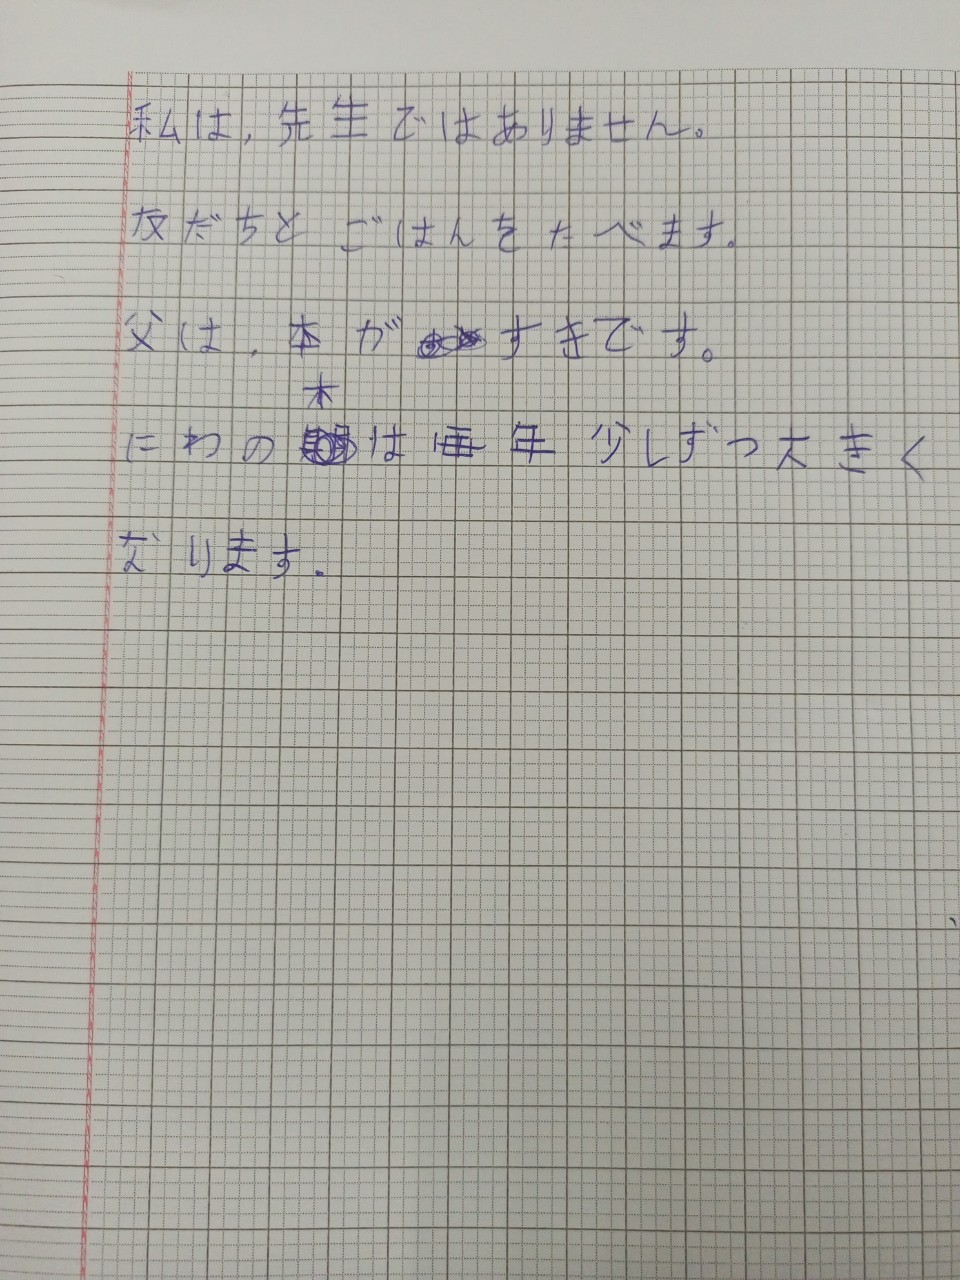 私は,先生ではありません。
友だちとごはんをたべます.
父は,本がすきです。
にわの木は毎年少しずつ大きく
なります.